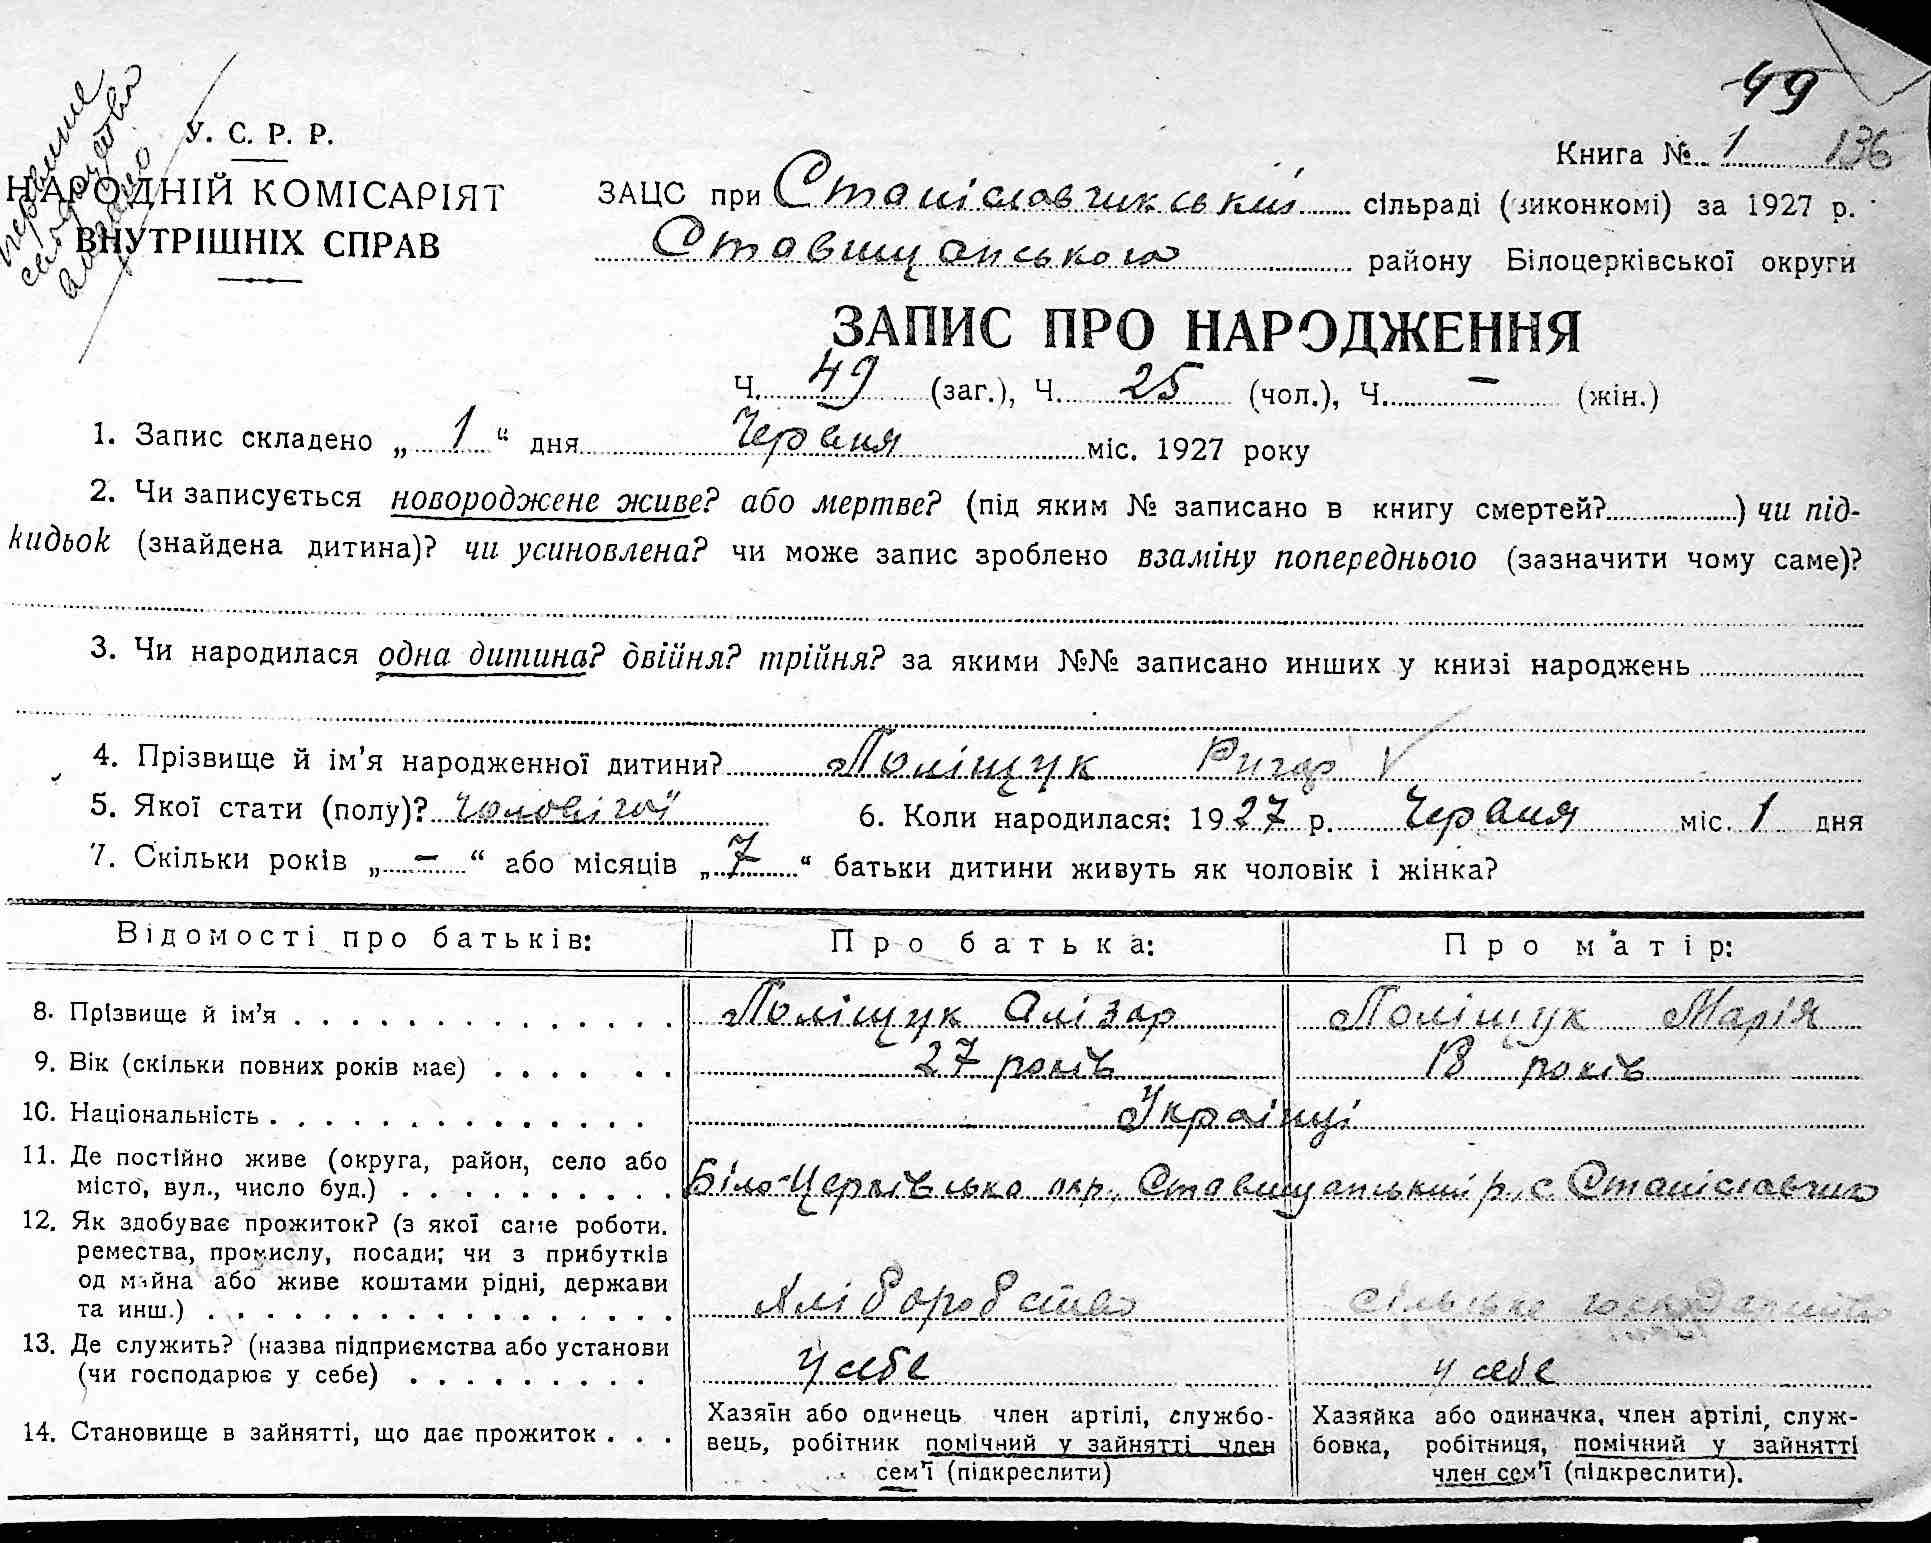 49
первише
свидоцтво
видано
У. С. Р. Р.
НАРОДНІЙ КОМІСАРІЯТ
ВНУТРІШНІХ СПРАВ
Книга № 1 136
ЗАЦС при Станіславчикській сільраді (виконкомі) за 1927 р.
Ставищанського району Білоцерківської округи
ЗАПИС ПРО НАРОДЖЕННЯ
Ч. 49 (заг.), Ч. 25 (чол.), Ч. – (жін.)
1. Запис складено „ 1 “ дня Червня міс. 1927 року
2. Чи записується новороджене живе? або мертве? (під яким № записано в книгу смертей?) чи під-
кидьок (знайдена дитина)? чи усиновлена? чи може запис зроблено взаміну попереднього (зазначити чому саме)?
3. Чи народилася одна дитина? двійня? трійня? за якими №№ записано инших у книзі народжень
4. Прізвище й ім’я народженної дитини? Поліщук Ригор V
5. Якої стати (полу)? Чоловічої 6. Коли народилася: 1927 р. Червня міс. 1 дня
7. Скільки років „ – “ або місяців „ 7 “ батьки дитини живуть як чоловік і жінка?
Відомості про батьків: Про батька: Про матір:
8. Прізвище й ім’я Поліщук Алізар Поліщук Марія
9. Вік (скільки повних років має) 27 років 18 років
10. Національність Українці
11. Де постійно живе (округа, район, село або
місто, вул., число буд.) Біло-Церківська окр., Ставищанський р., с. Станіславчик
12. Як здобуває прожиток? (з якої саме роботи.
ремества, промислу, посади; чи з прибутків
од майна або живе коштами рідні, держави
та инш.) Хліборобство сільське господарство
13. Де служить? (назва підприємства або установи
(чи господарює у себе) у себе у себе
14. Становище в зайнятті, що дає прожиток
Хазяїн або одинець член артілі, службо-
вець, робітник помічний у зайнятті член
сем’ї (підкреслити)
Хазяйка або одиначка, член артілі, служ-
бовка, робітниця, помічний у зайнятті
член сем’ї (підкреслити).